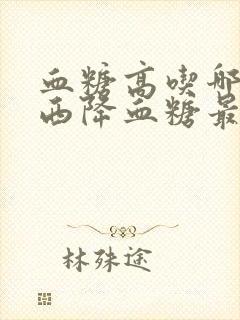 血糖高喫哪
西降血糖最
林殊途